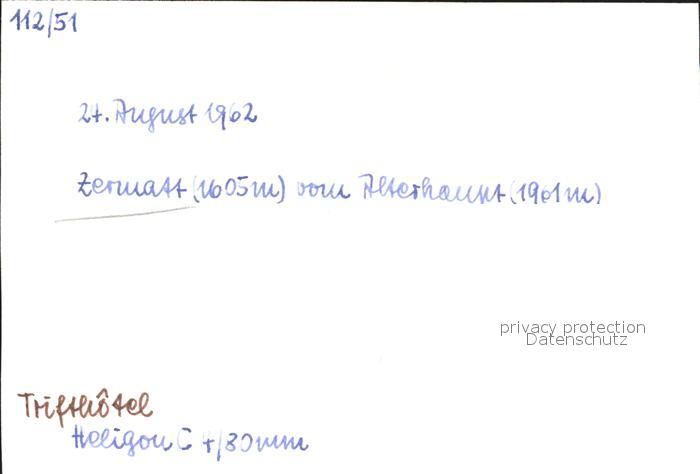 112/51
24. August 1962
Zermatt (1605m) vom Alterhaupt (1961m)
privacy protection
Datenschutz
Trifthôtel
Heligon C 4/80mm